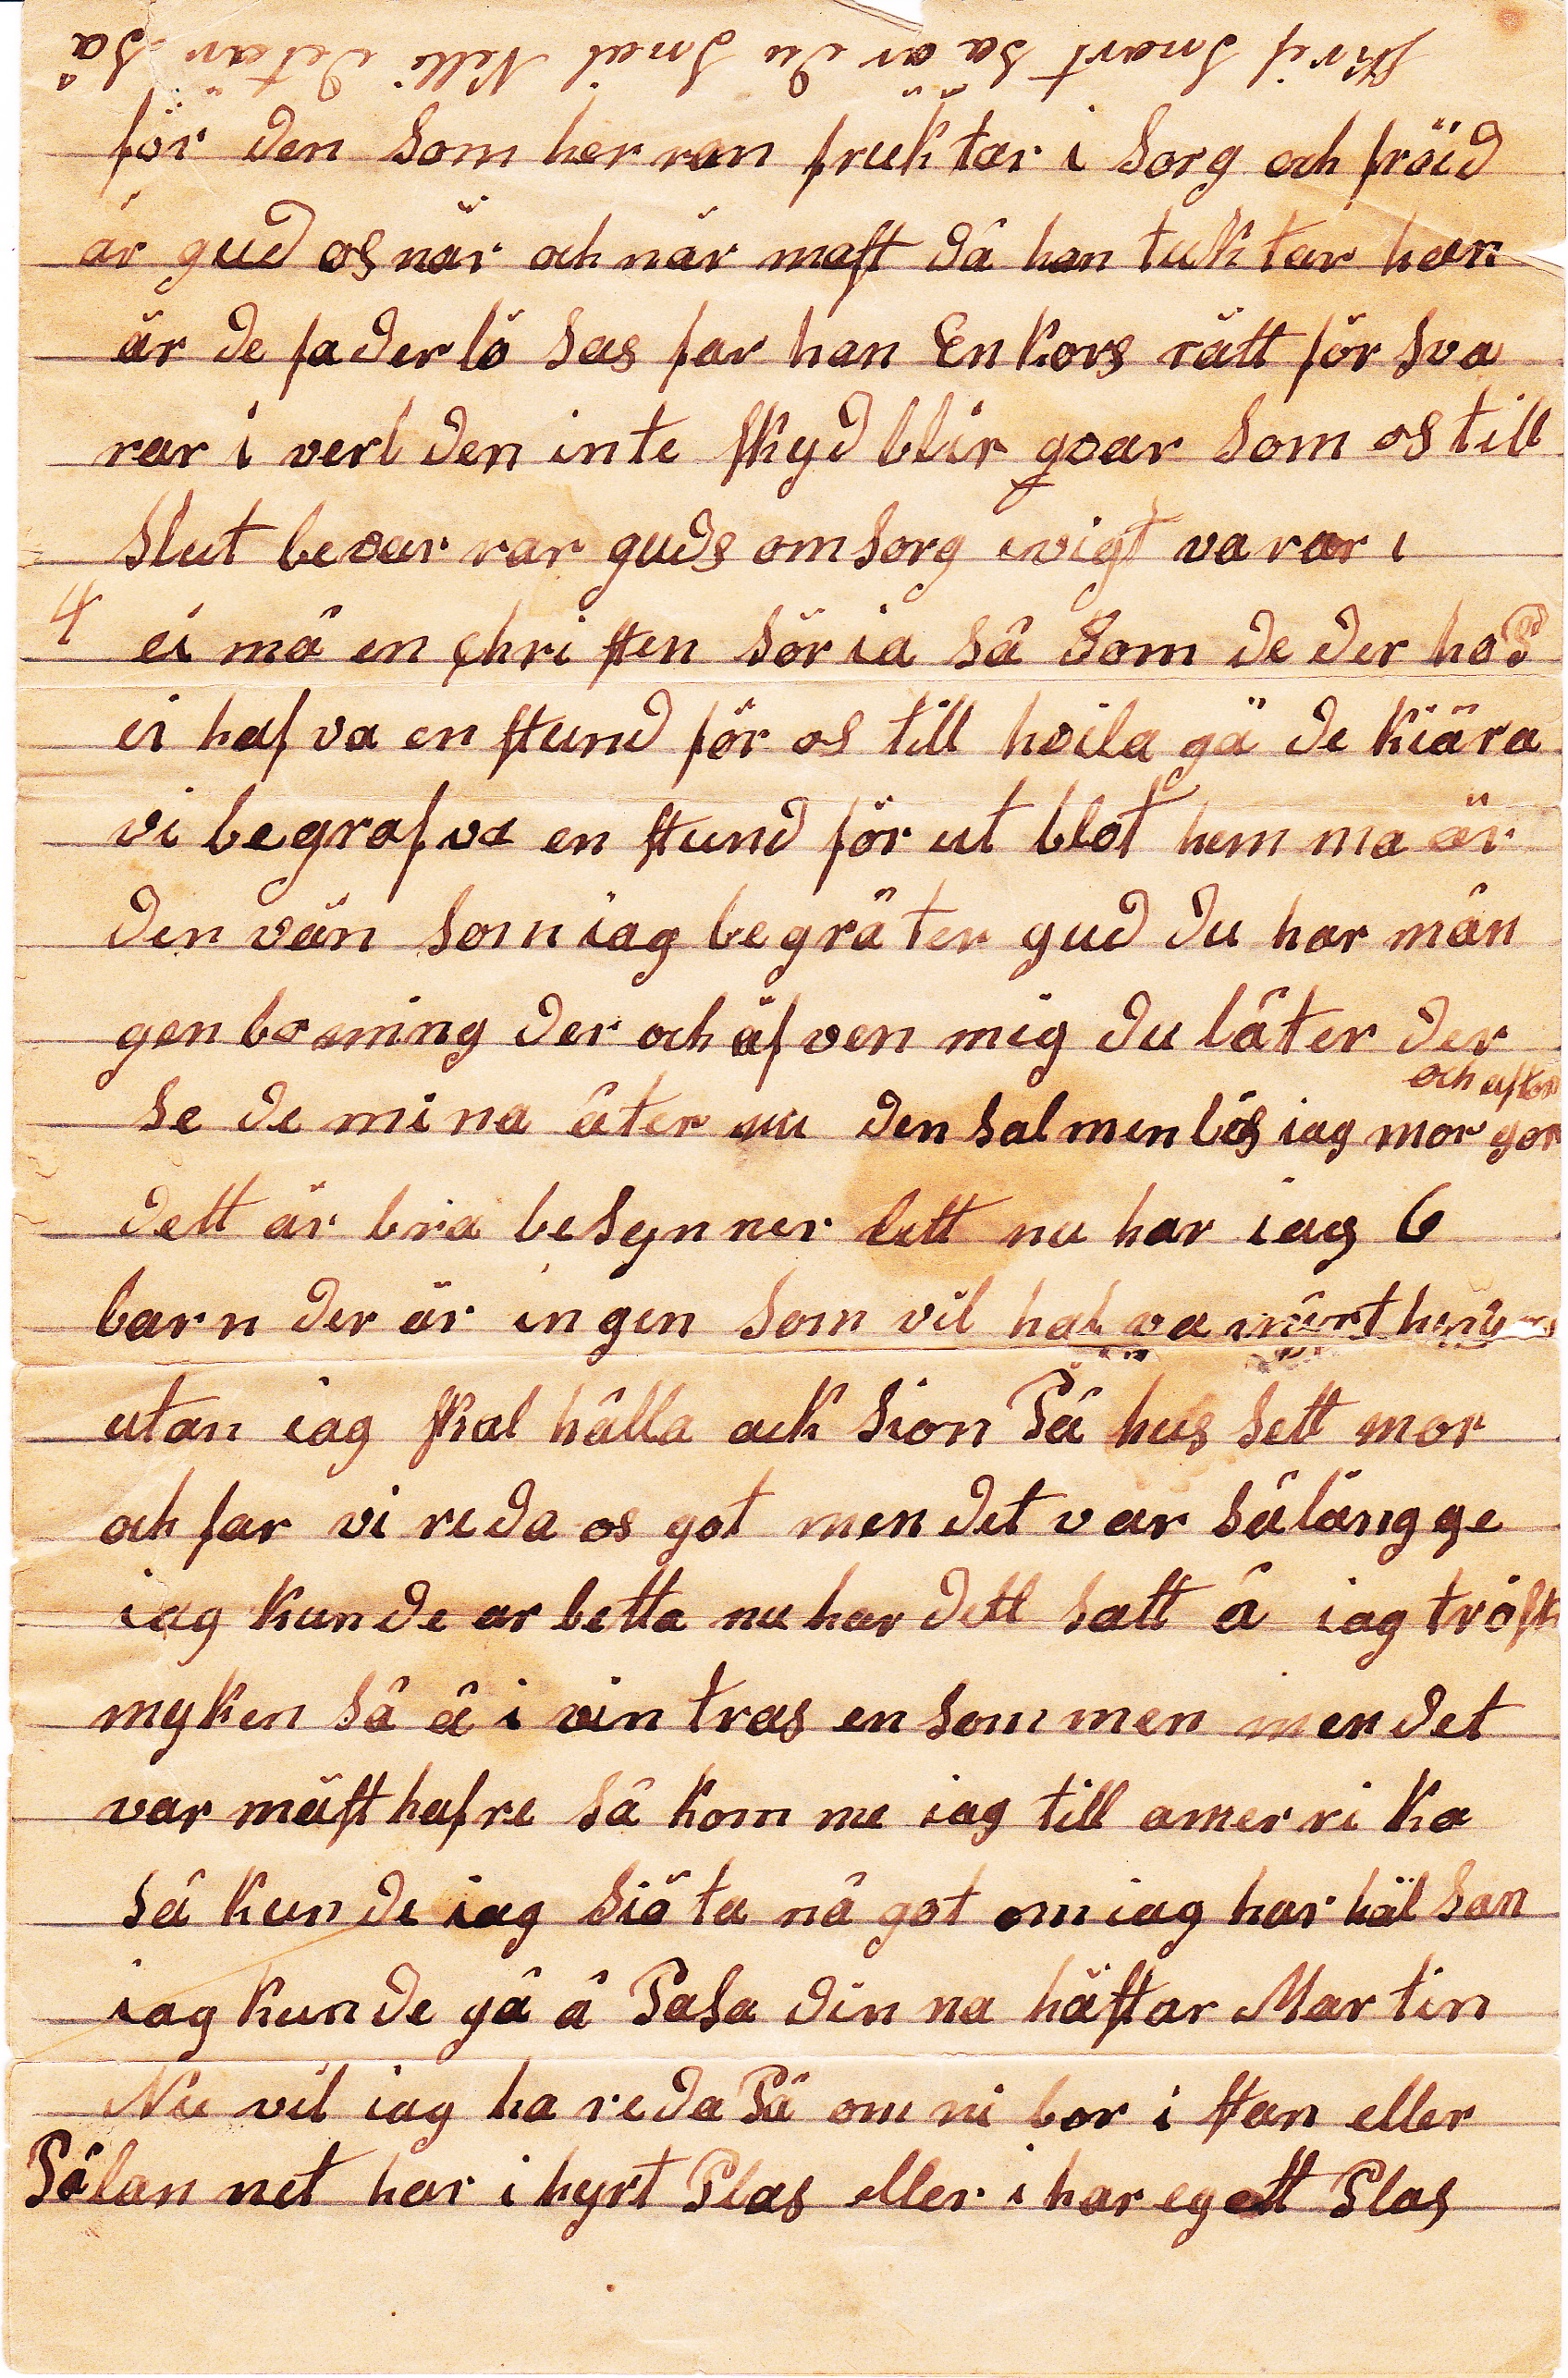 skrif snart så är du snäl Nelli det är så
för den som herran fruktar i sorg och fröid
är gud os när och när mast då han tuktar han
är de faderlösas far han Enkors rätt försva
rar i verlden inte skyd blir qvar som os till
slut bevarrar guds omsorg evigt varar i
4 ei må en christen söria så som de der hop
ei hafva en stund för os till hvila gå de kiära
vi begrafva en stund förut blot hemma är
den vän som iag begräter gud du har mån
gen boning der och äfven mig du låter der
och afton
se de mina åter nu den salmen läs iag morgon
dett är bra besynnerlett nu har iag 6
barn der är ingen som vil hafva
utan iag skal hålla acksion På hus sett mor
och far vi reda os got men det var sålängge
iag kunde arbetta nu har dett satt å iag tröst
myken så å i vintras ensommen men det
var mäst hafre så komme iag till amerrika
så kunde iag siöta något om iag har hälsan
iag kunde gå å Pasa dinna hästar Martin
Nu vil iag ha reda På om ni bor i stan eller
På lannet har i hyrt Plas eller i har egett Plas